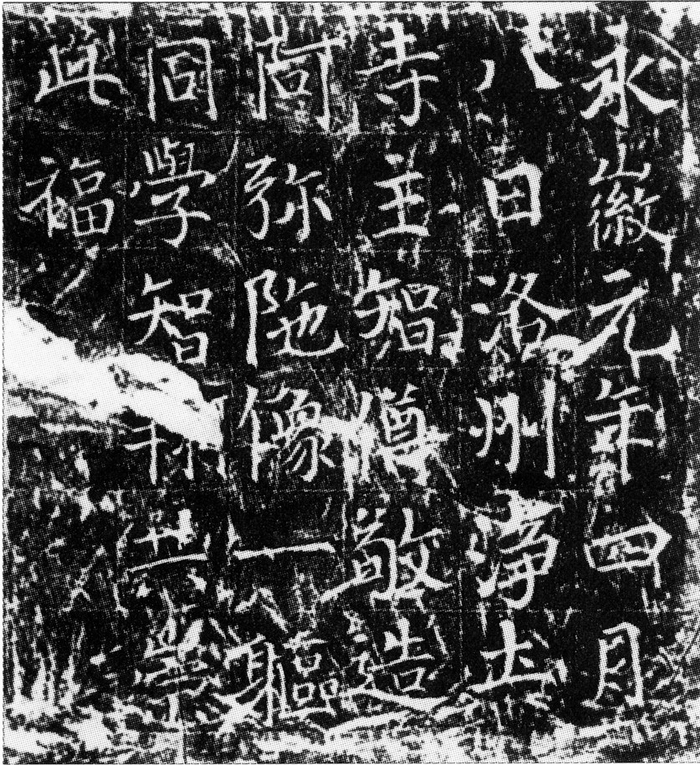 永徽元年四月
八日洛州淨土
寺主智僔敬造
阿弥陁像一軀
同學智共崇
此福